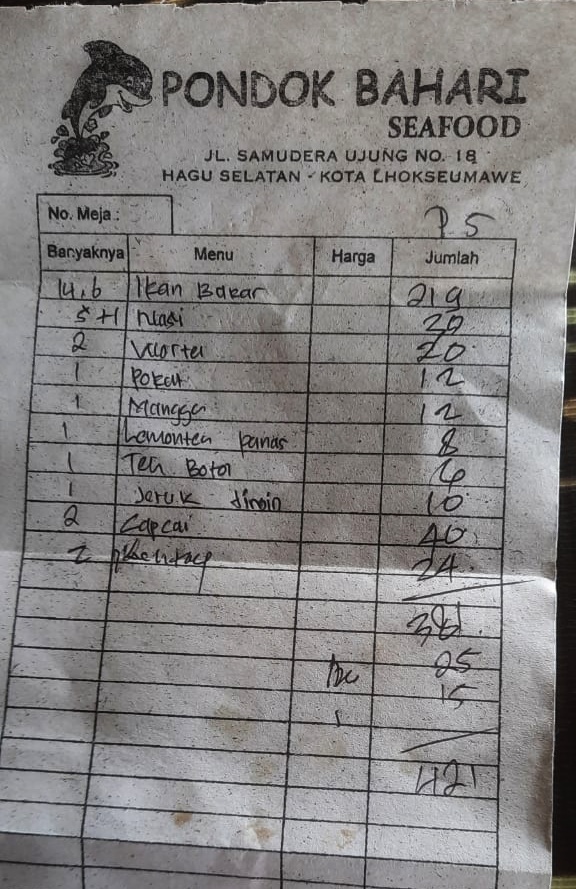 PONDOK BAHARI
SEAFOOD
JL. SAMUDERA UJUNG NO. 18
HAGU SELATAN - KOTA LHOKSEUMAWE
No. Meja : P5
Banyaknya Menu Harga Jumlah
14,6 Ikan Bakar 219
5+1 Nasi 30
2 Wortel 20
1 Pokat 12
1 Mangga 12
1 Lemontea panas 8
1 Teh Botol 6
1 Jeruk dingin 10
2 Capcai 40
2 24
381
25
15
421